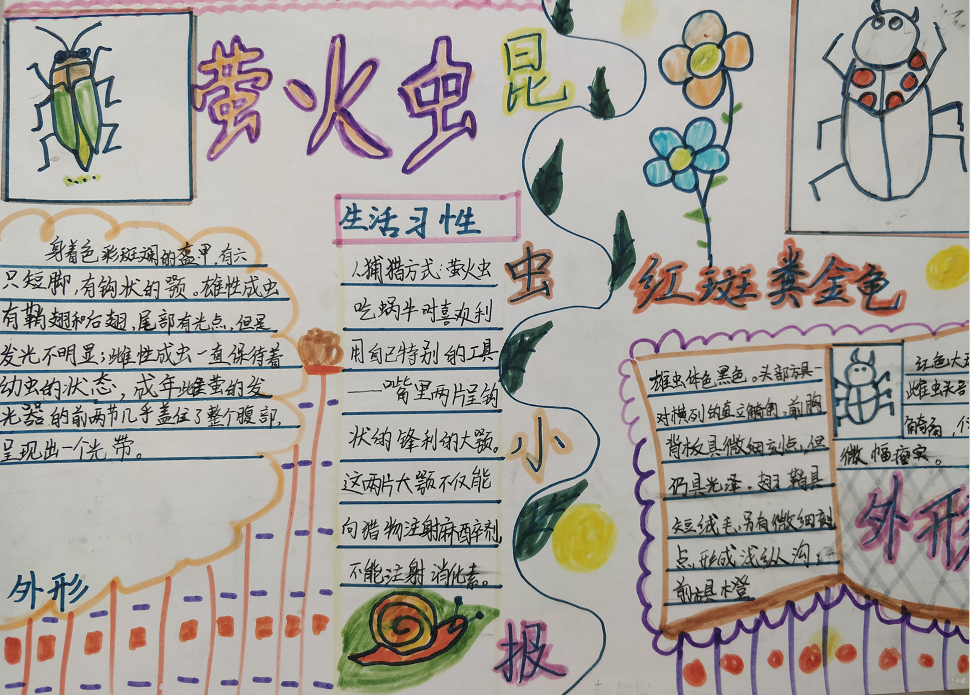 萤火虫
昆
虫
小
报
身着色彩斑斓的盔甲,有六
只短脚,有钩状的颚。雄性成虫
有鞘翅和右翅,尾部有光点,但是
发光不明显;雌性成虫一直保持着
幼虫的状态,成年雌萤的发
光器的前两节几乎盖住了整个腹部,
呈现出一个光带。
外形
生活习性
1捕猎方式:萤火虫
吃蜗牛时喜欢利
用自己特别的工具
——嘴里两片呈钩
状的锋利的大颚。
这两片大颚不仅能
向猎物注射麻醉剂,
不能注射消化素。
红斑粪金龟
雄虫体色黑色。头部具一
对横列的直立犄角,前胸
背板具微细刻点,但
仍具光泽。翅鞘具
短绒毛,另有微细刻
点,形成浅纵沟;
前
红色大
雌虫头
犄角,
微幅瘤突。
外形